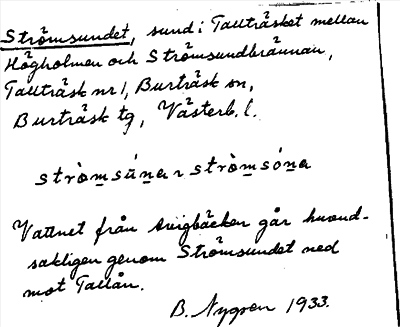 Strömsundet, sund i Tallträsket mellan
Högholmen och Strömsundbrännan,
Tallträsk nr 1, Burträsk sn,
Burträsk tg, Västerb. l.
stròmsúna ~ stròmsóna
Vattnet från Avigbäcken går huvud-
sakligen genom Strömsundet ned
mot Tallån.
B. Nygren 1933.